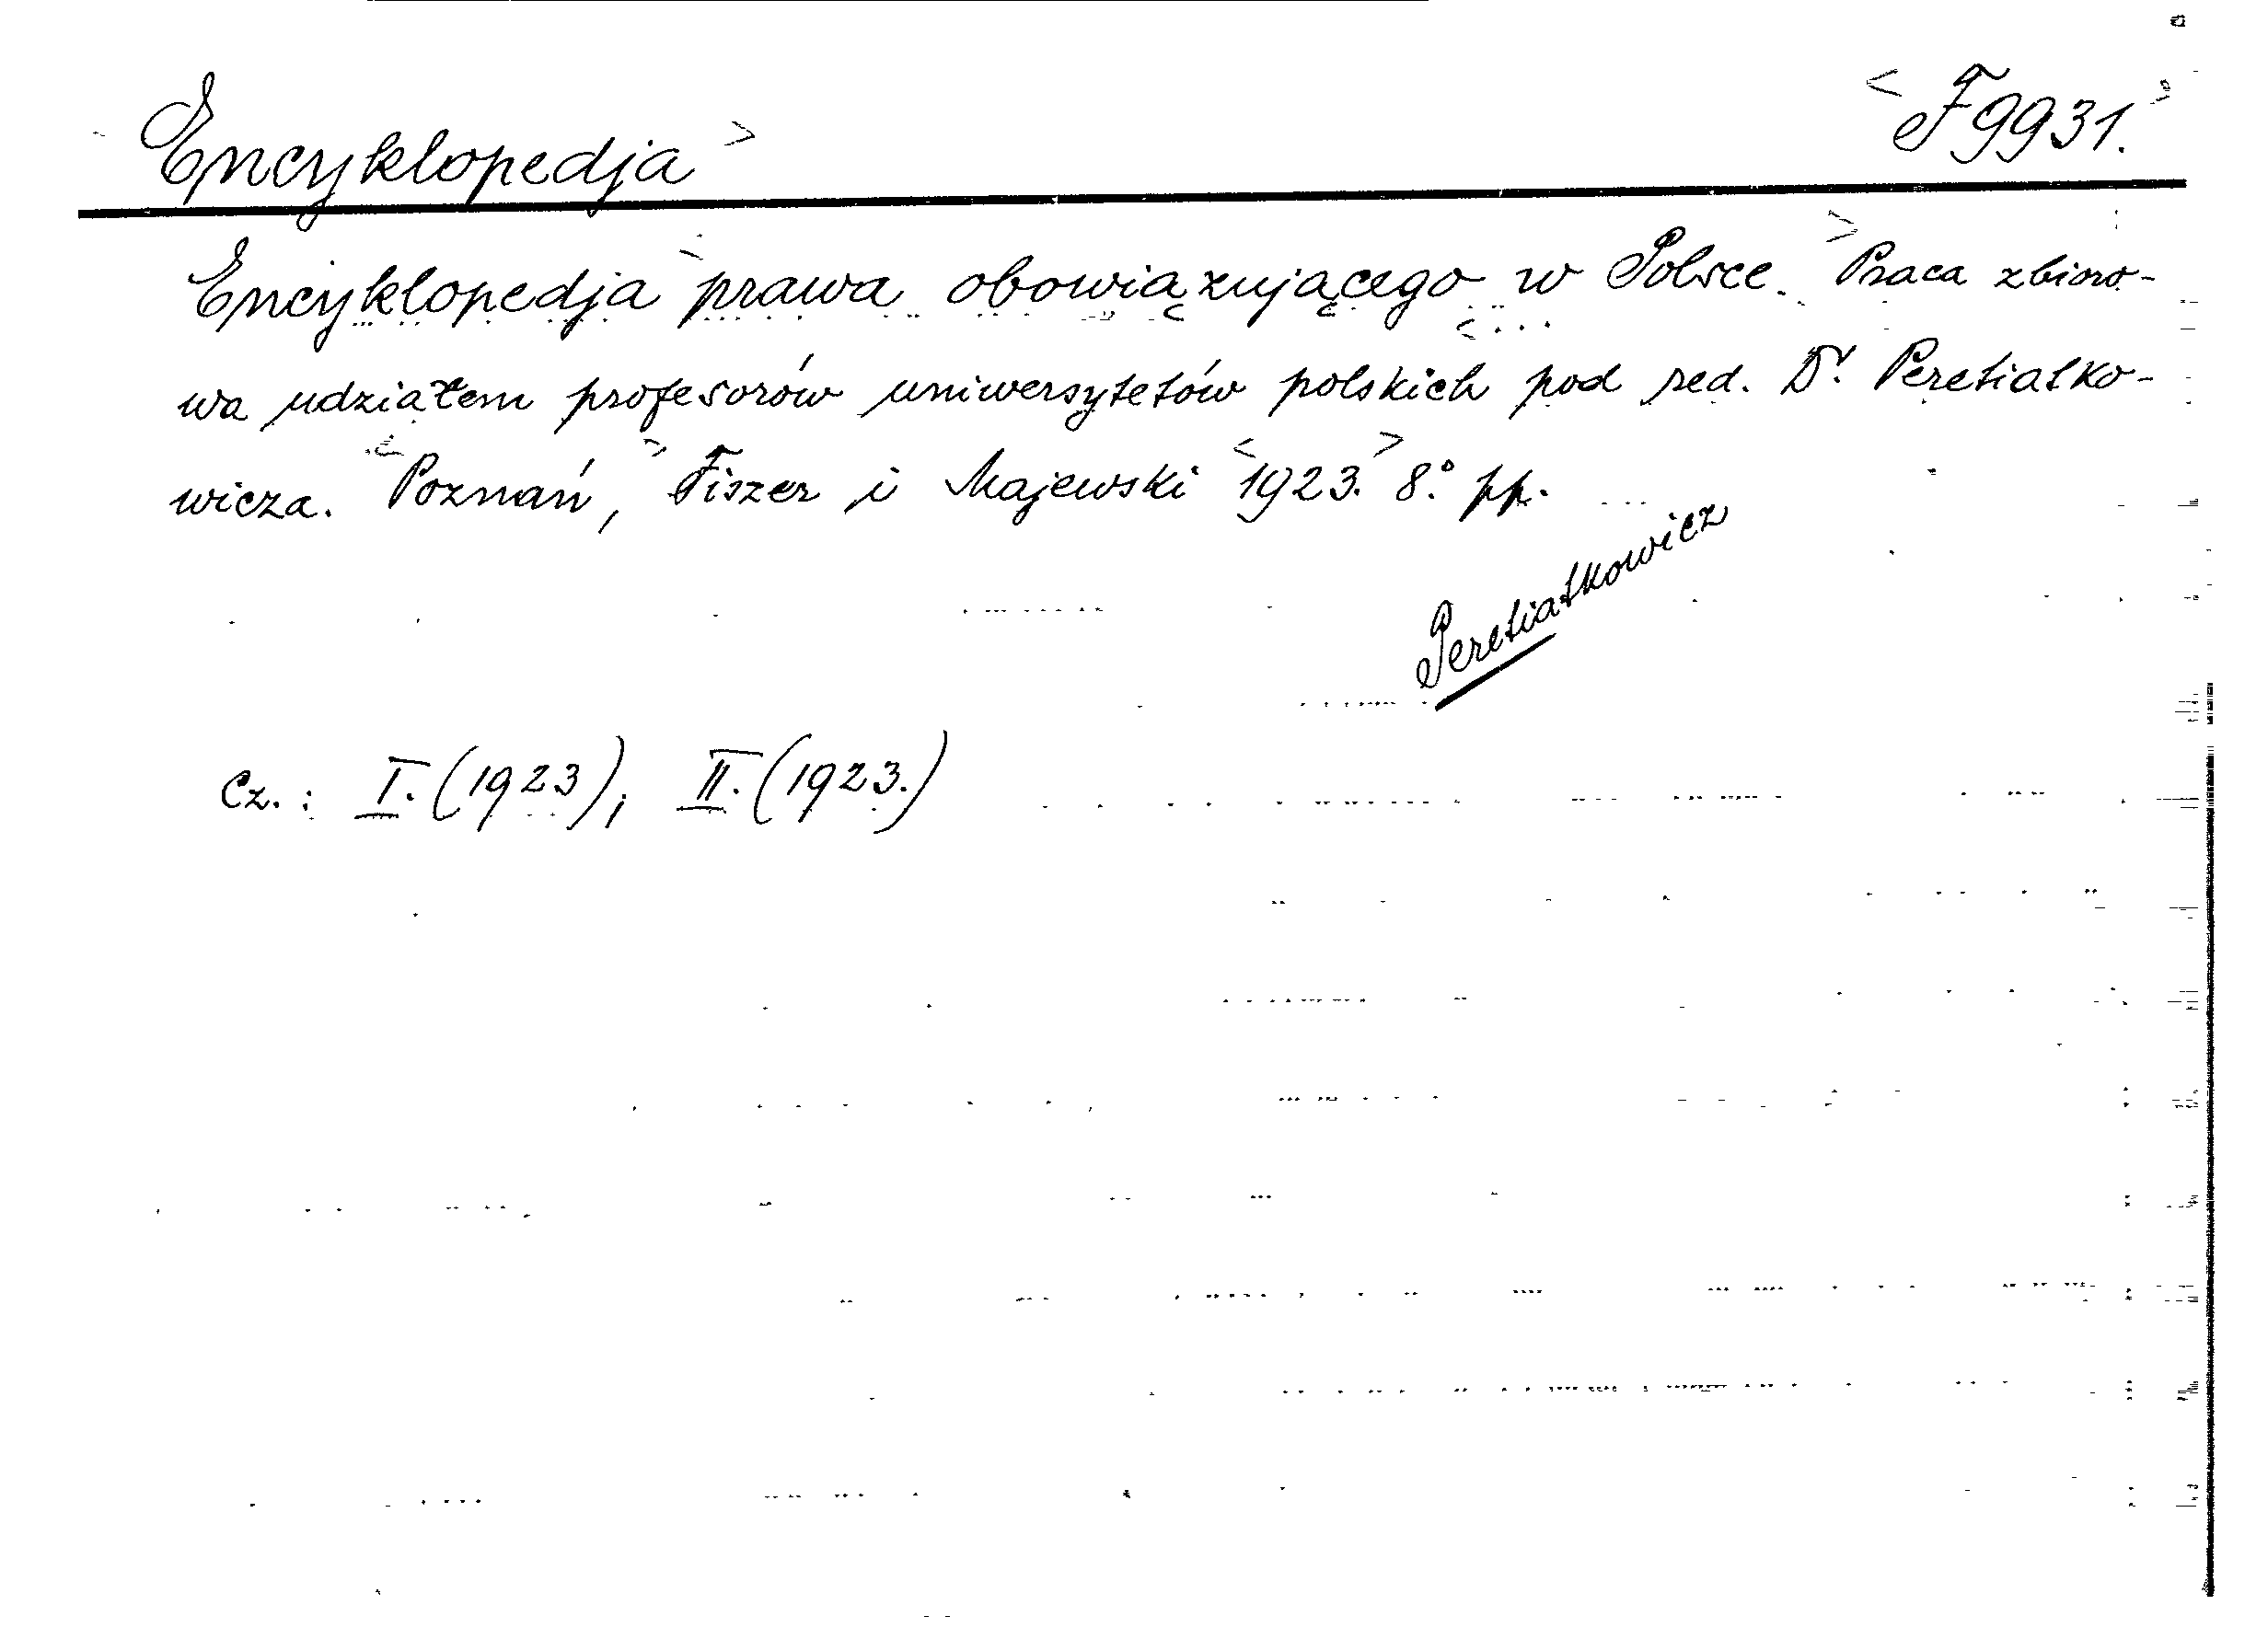 Encyklopedja
F 9931.
Encyklopedja prawa obowiązującego w Polsce. Praca zbioro-
wa udziałem profesorów uniwersytetów polskich pod red. Dr. Peretiatko-
wicza. Poznań, Fiszer i Majewski 1923. 8.° pp.
Peretiatkowicz
Cz.: I. (1923); II. (1923.)